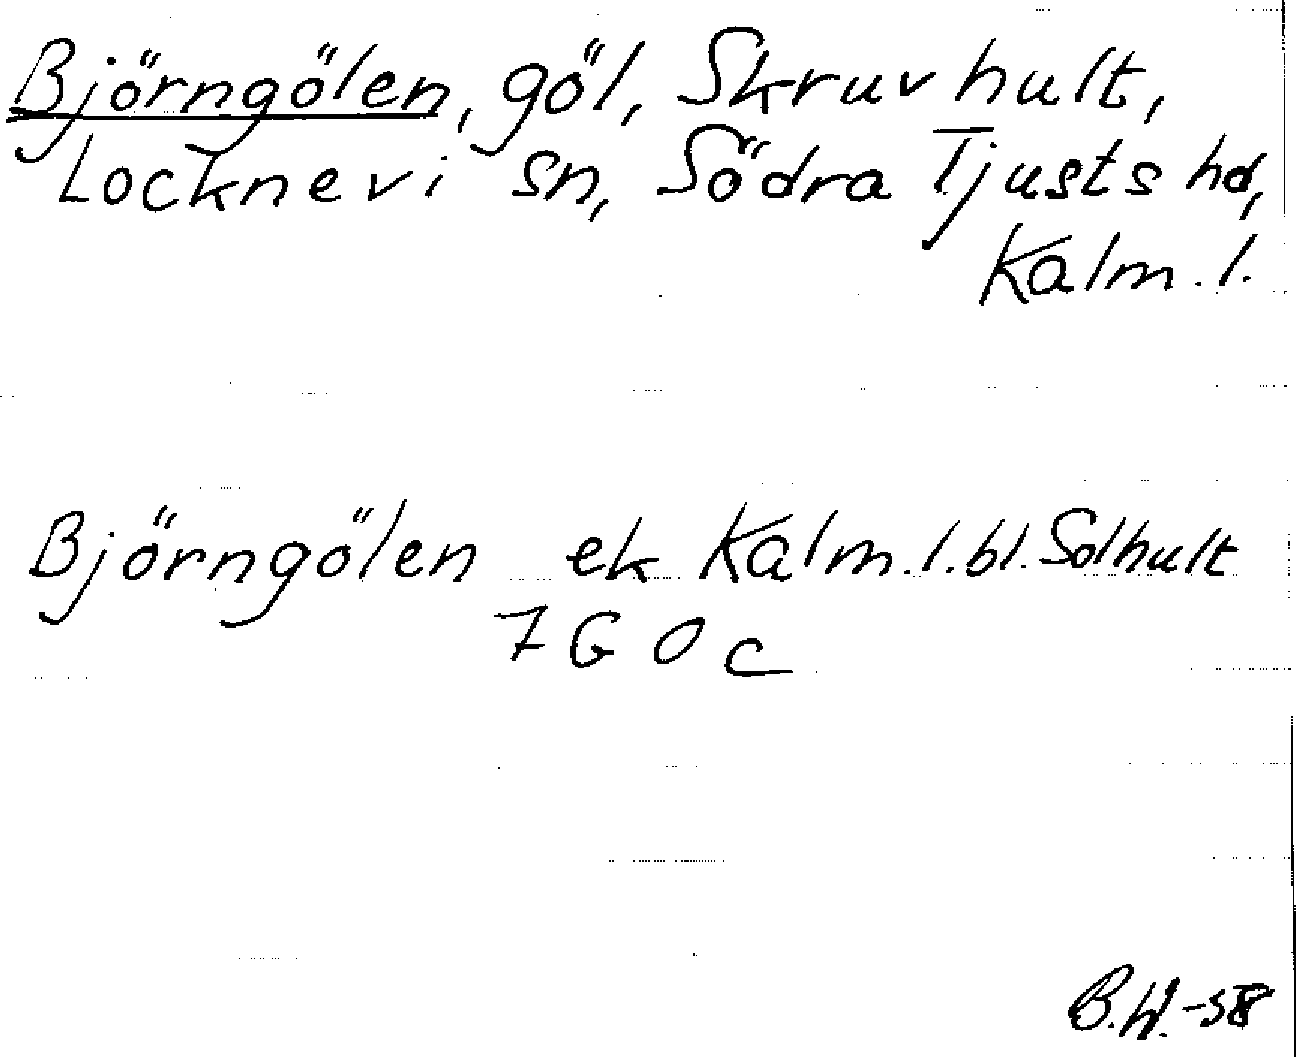 Björngölen, göl, Skruvhult,
Locknevi sn, Södra Tjusts hd,
Kalm. l.
Björngölen ek Kalm. l. bl. Solhult
7G 0c
B.W.-58